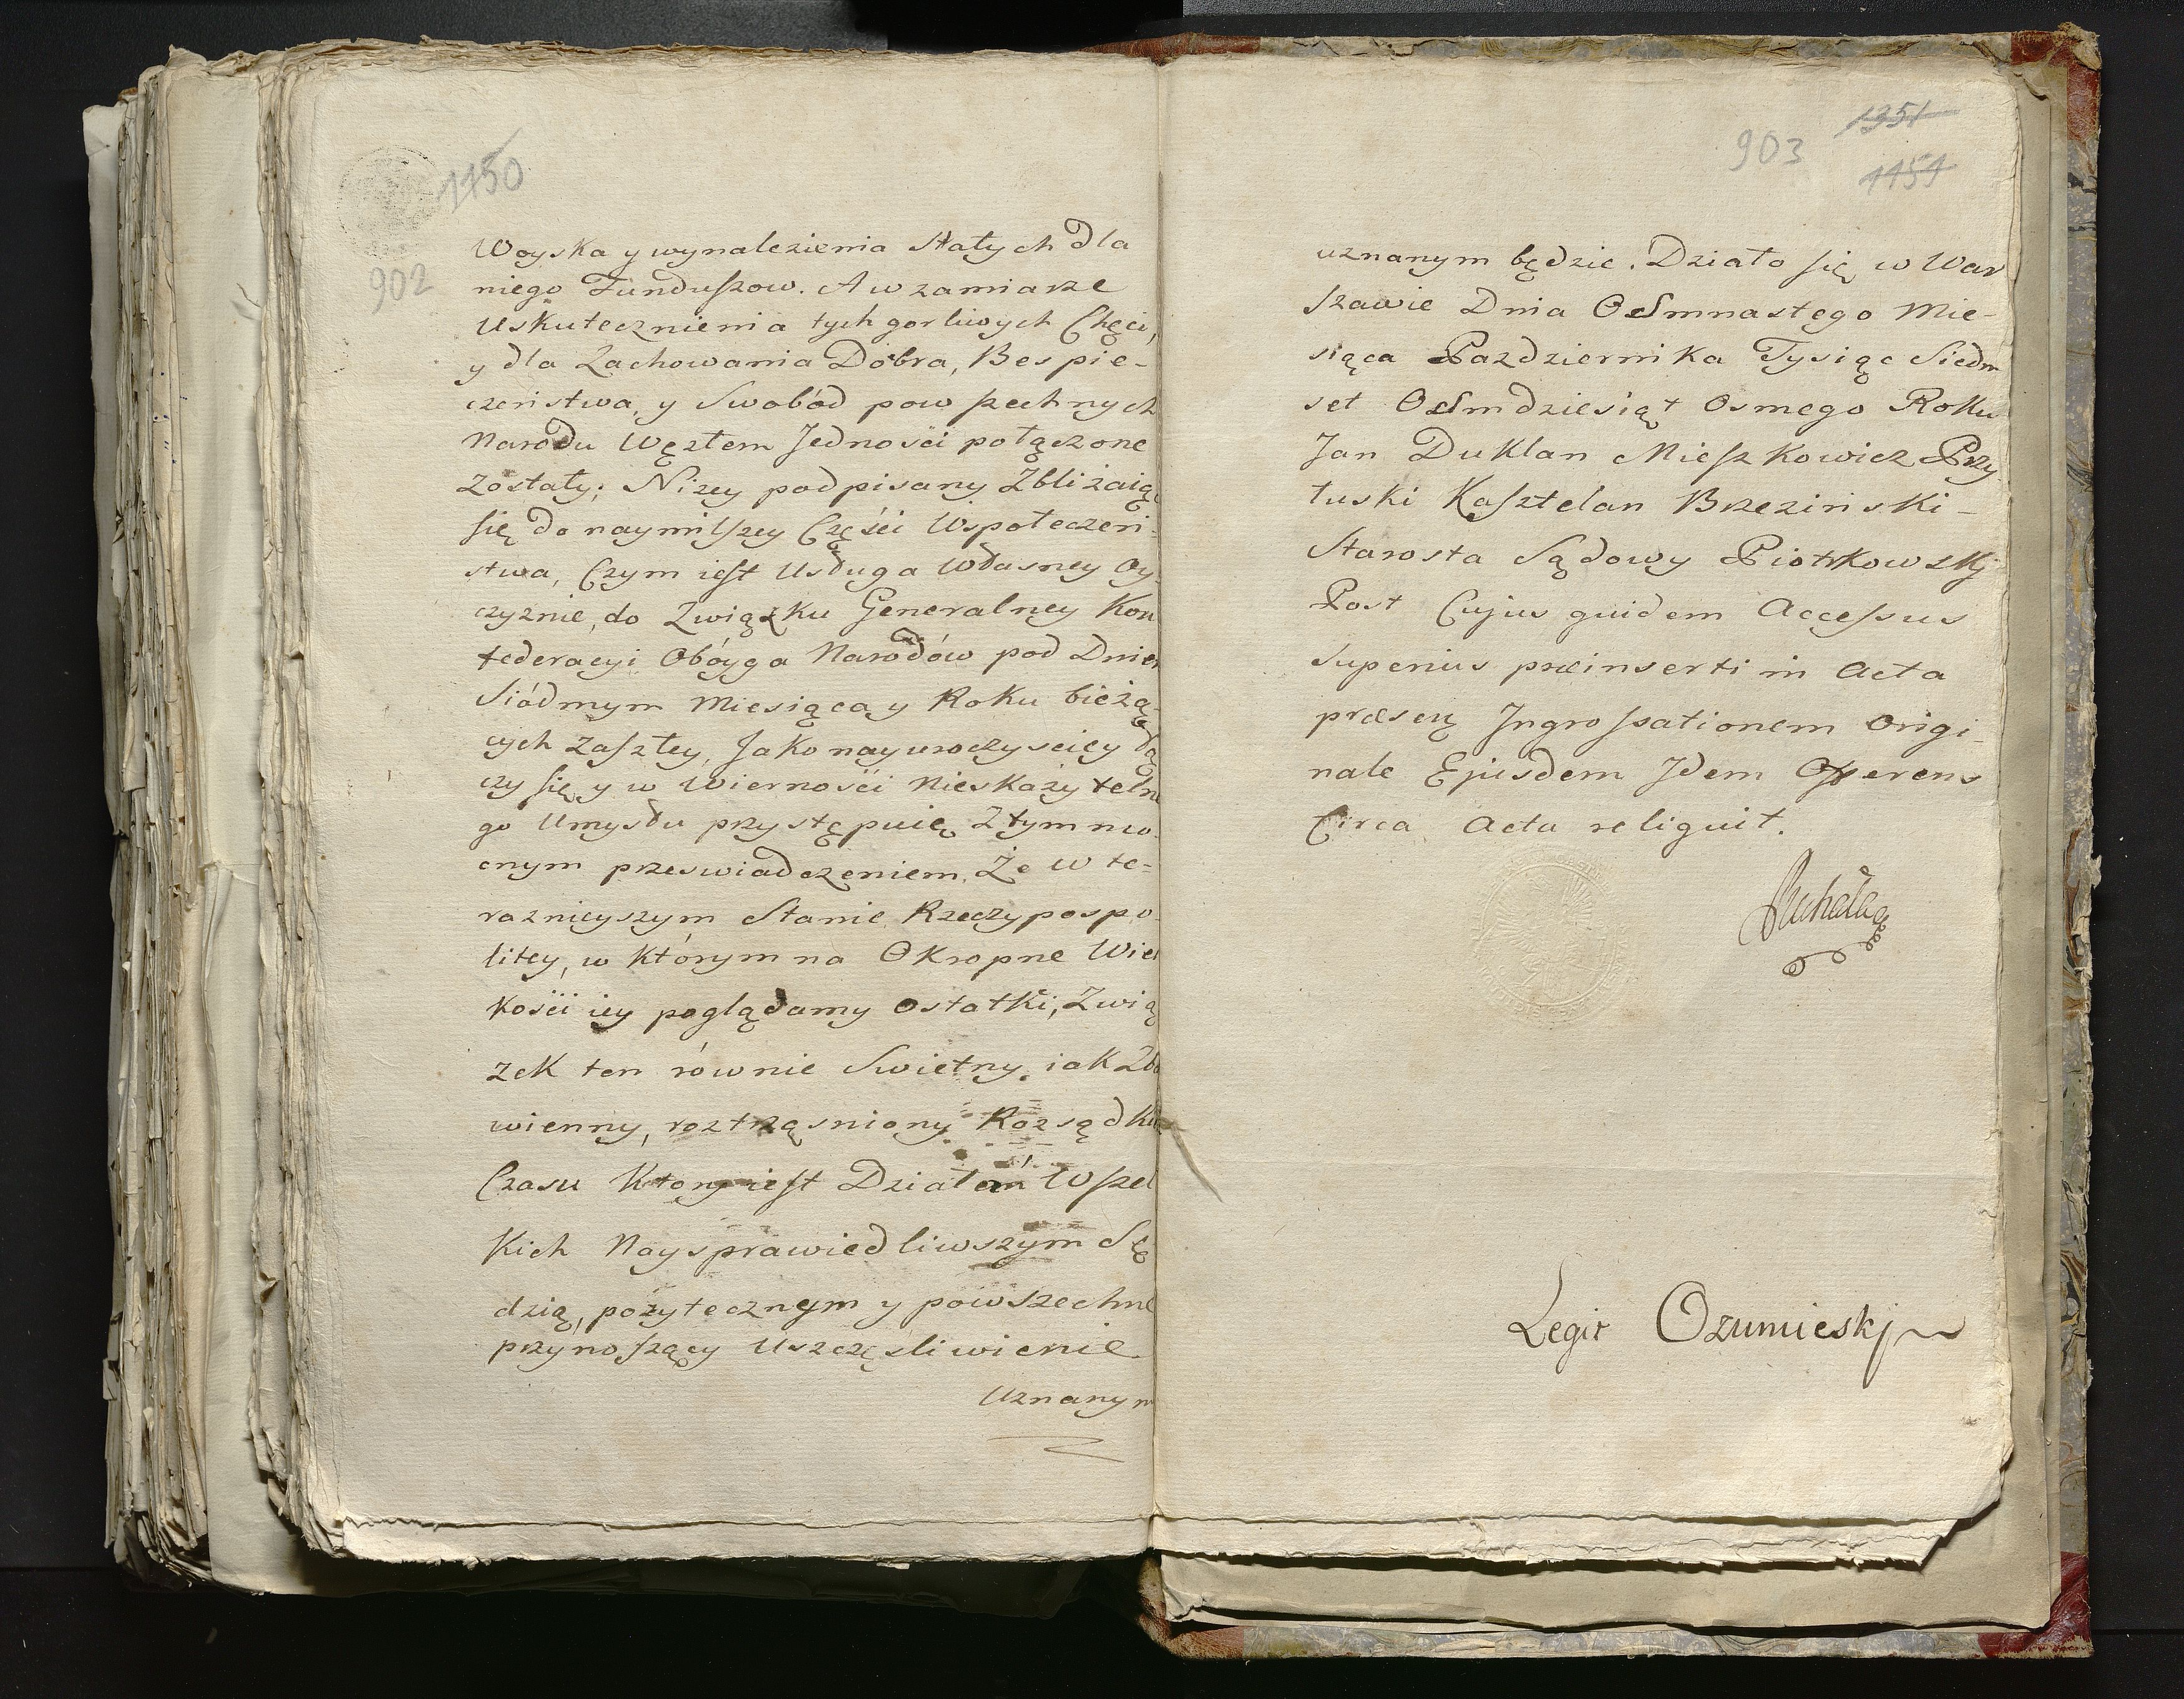 1150
902
Woyska y wynalezienia Stałych dla
niego Funduſzow. A w zamiarze
Uskutecznienia tych gorliwych Chęci,
y dla Zachowania Dobra, Bespie-
czeństwa, y Swobód powſzechnych
Narodu Węzłem Jedności połączone
Zostały; Niżey podpisany Zbliżaiąc
ſię do naymilſzey Części Wspołeczeń-
stwa, Czym ieſt Usługa Własney Oy-
czyznie, do Związku Generalney Kon
federacyi Oboyga Narodów pod Dniem
Siódmym Miesiąca y Roku bieżą-
cych Zaſzłey, Jako nayuroczyściey łą
czy ſię y w Wierności Nieskazytelne
go Umysłu przystępuię, Z tym mo-
cnym przeswiadczeniem, Że w te-
raznieyszym Stanie Rzeczypospo-
litey, w którym na Okropne Wiel
kości iey poglądamy Ostatki, Zwią
zek ten równie Swietny, iak Zba
wienny, roztrząsniony Rozsądkiem
Czasu Ktory ieſt Działań Wſzel
kich Naysprawiedliwszym Sę
dzią, pożytecznym y powszechne
przynoſzący Uszczęśliwienie
Uznanym
903
1351
1151
uznanym będzie. Działo ſię w War
ſzawie Dnia Oſmnastego Mie-
siąca Pazdziernika Tysiąc Siedm
set Oſmdziesiąt Osmego Roku
Jan Duklan Mieſzkowicz Przy
łuski Kaſztelan Brzezinski-
Starosta Sądowy Piotrkowski
Post Cujus quidem Acceſsus
Superius præinserti in Acta
præsen Ingroſsationem Origi-
nale Ejusdem Idem Offerens
Circa Acta reliquit.
Legit